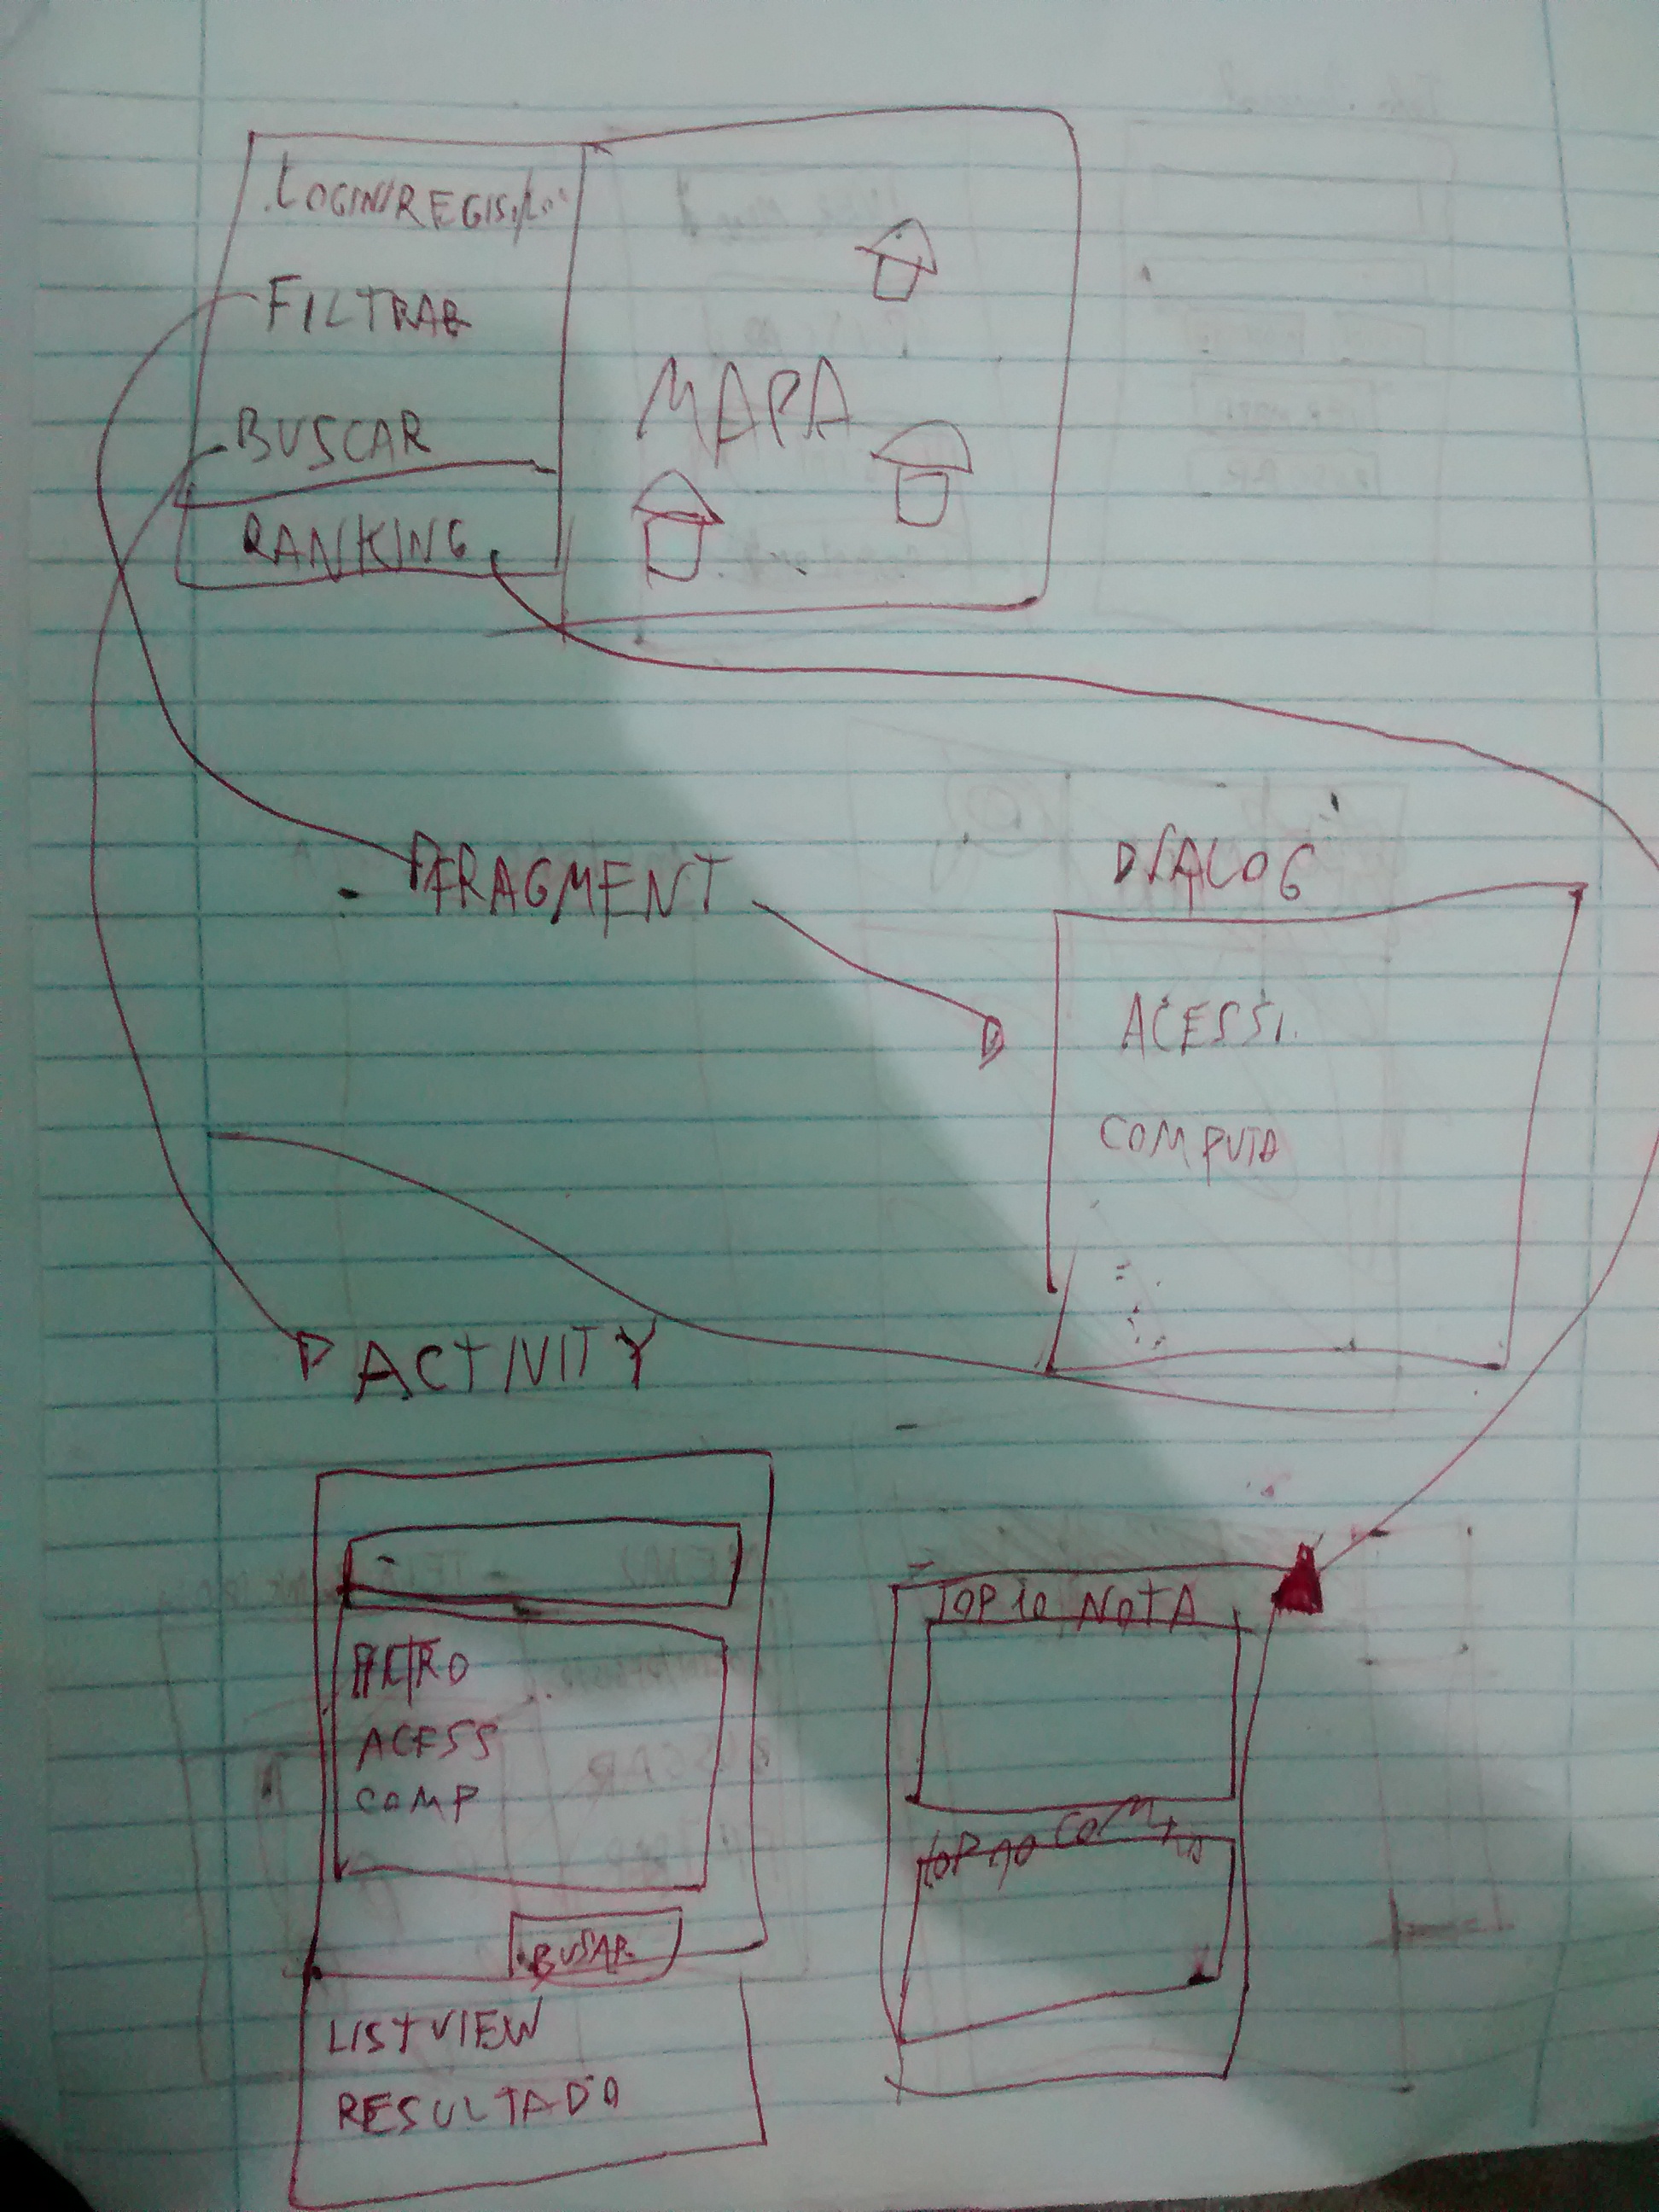 FILTRAR
BUSCAR
RANKING
MAPA
FRAGMENT
DIALOG
ACESSI.
COMPUTA
ACTIVITY
FILTRO
ACESS
COMP
BUSAR
LISTVIEW
RESULTADO
TOP 10 NOTA
TOP 10